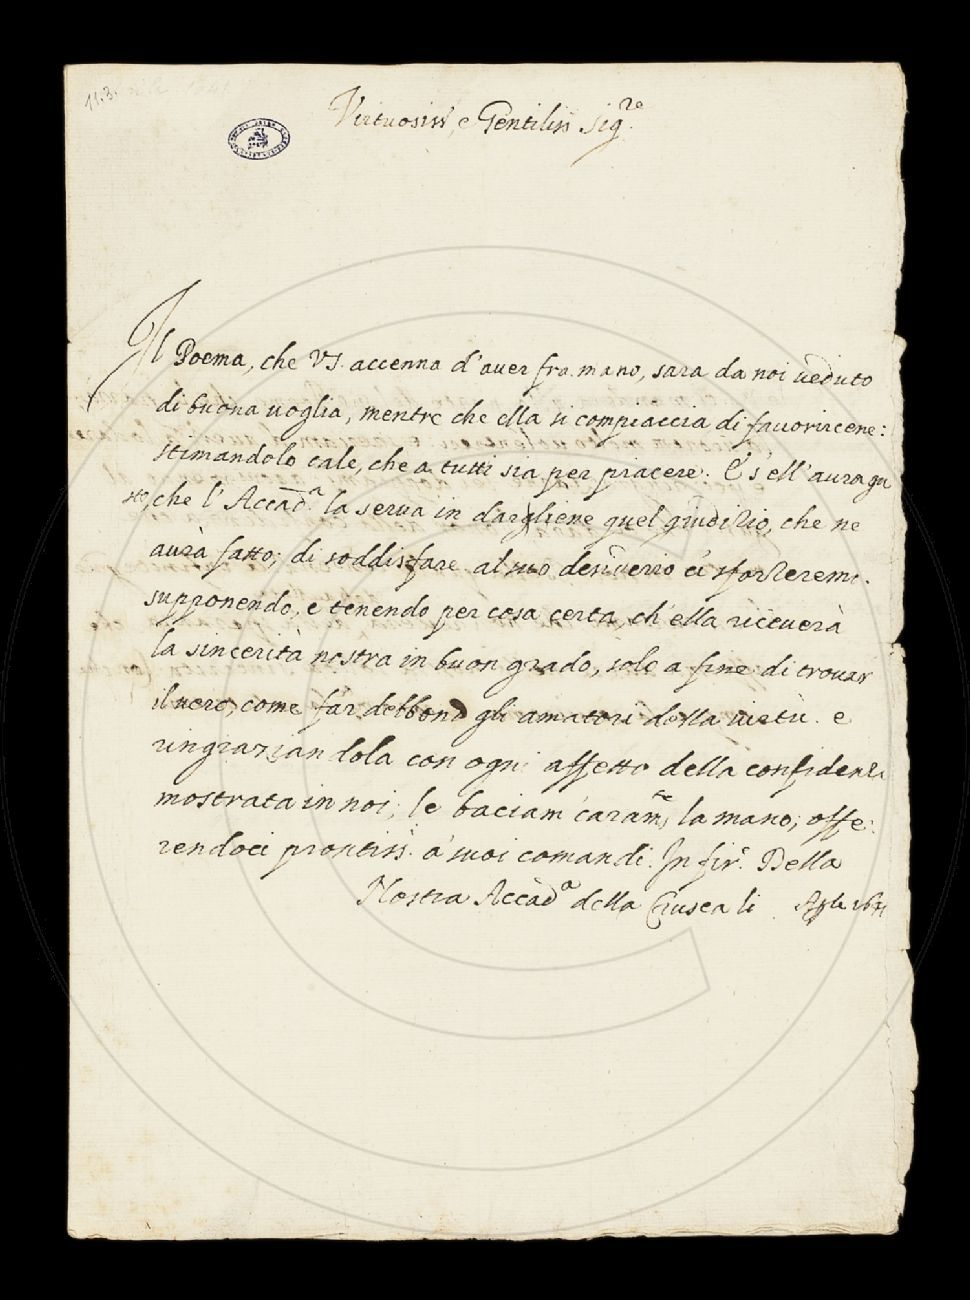 11.3.
Virtuosiss, e Gentiliss Sig.re
Il Poema, che VS. accenna d'auer fra mano, sara da noi ueduto
di buona uoglia, mentre che ella si compiaccia di fauorircene:
stimandolo tale, che a tutti sia per piacere. E s'ell'aura gu
sto, che l'Accad.a la serua in dargliene quel giudizio, che ne
aurà fatto; di soddisfare al suo desiderio ci sforzeremo.
supponendo, e tenendo per cosa certa, ch'ella riceuerà
la sincerità nostra in buon grado, solo a fine di trouar
il uero, come far debbono gli amatori della uirtù. e
ringraziandola con ogni affetto della confidenza
mostrata in noi, le baciam caram.te la mano; offe:
rendoci prontiss. a' suoi comandi. In fir.e Della
Nostra Accad.a della Crusca li Aple 1641